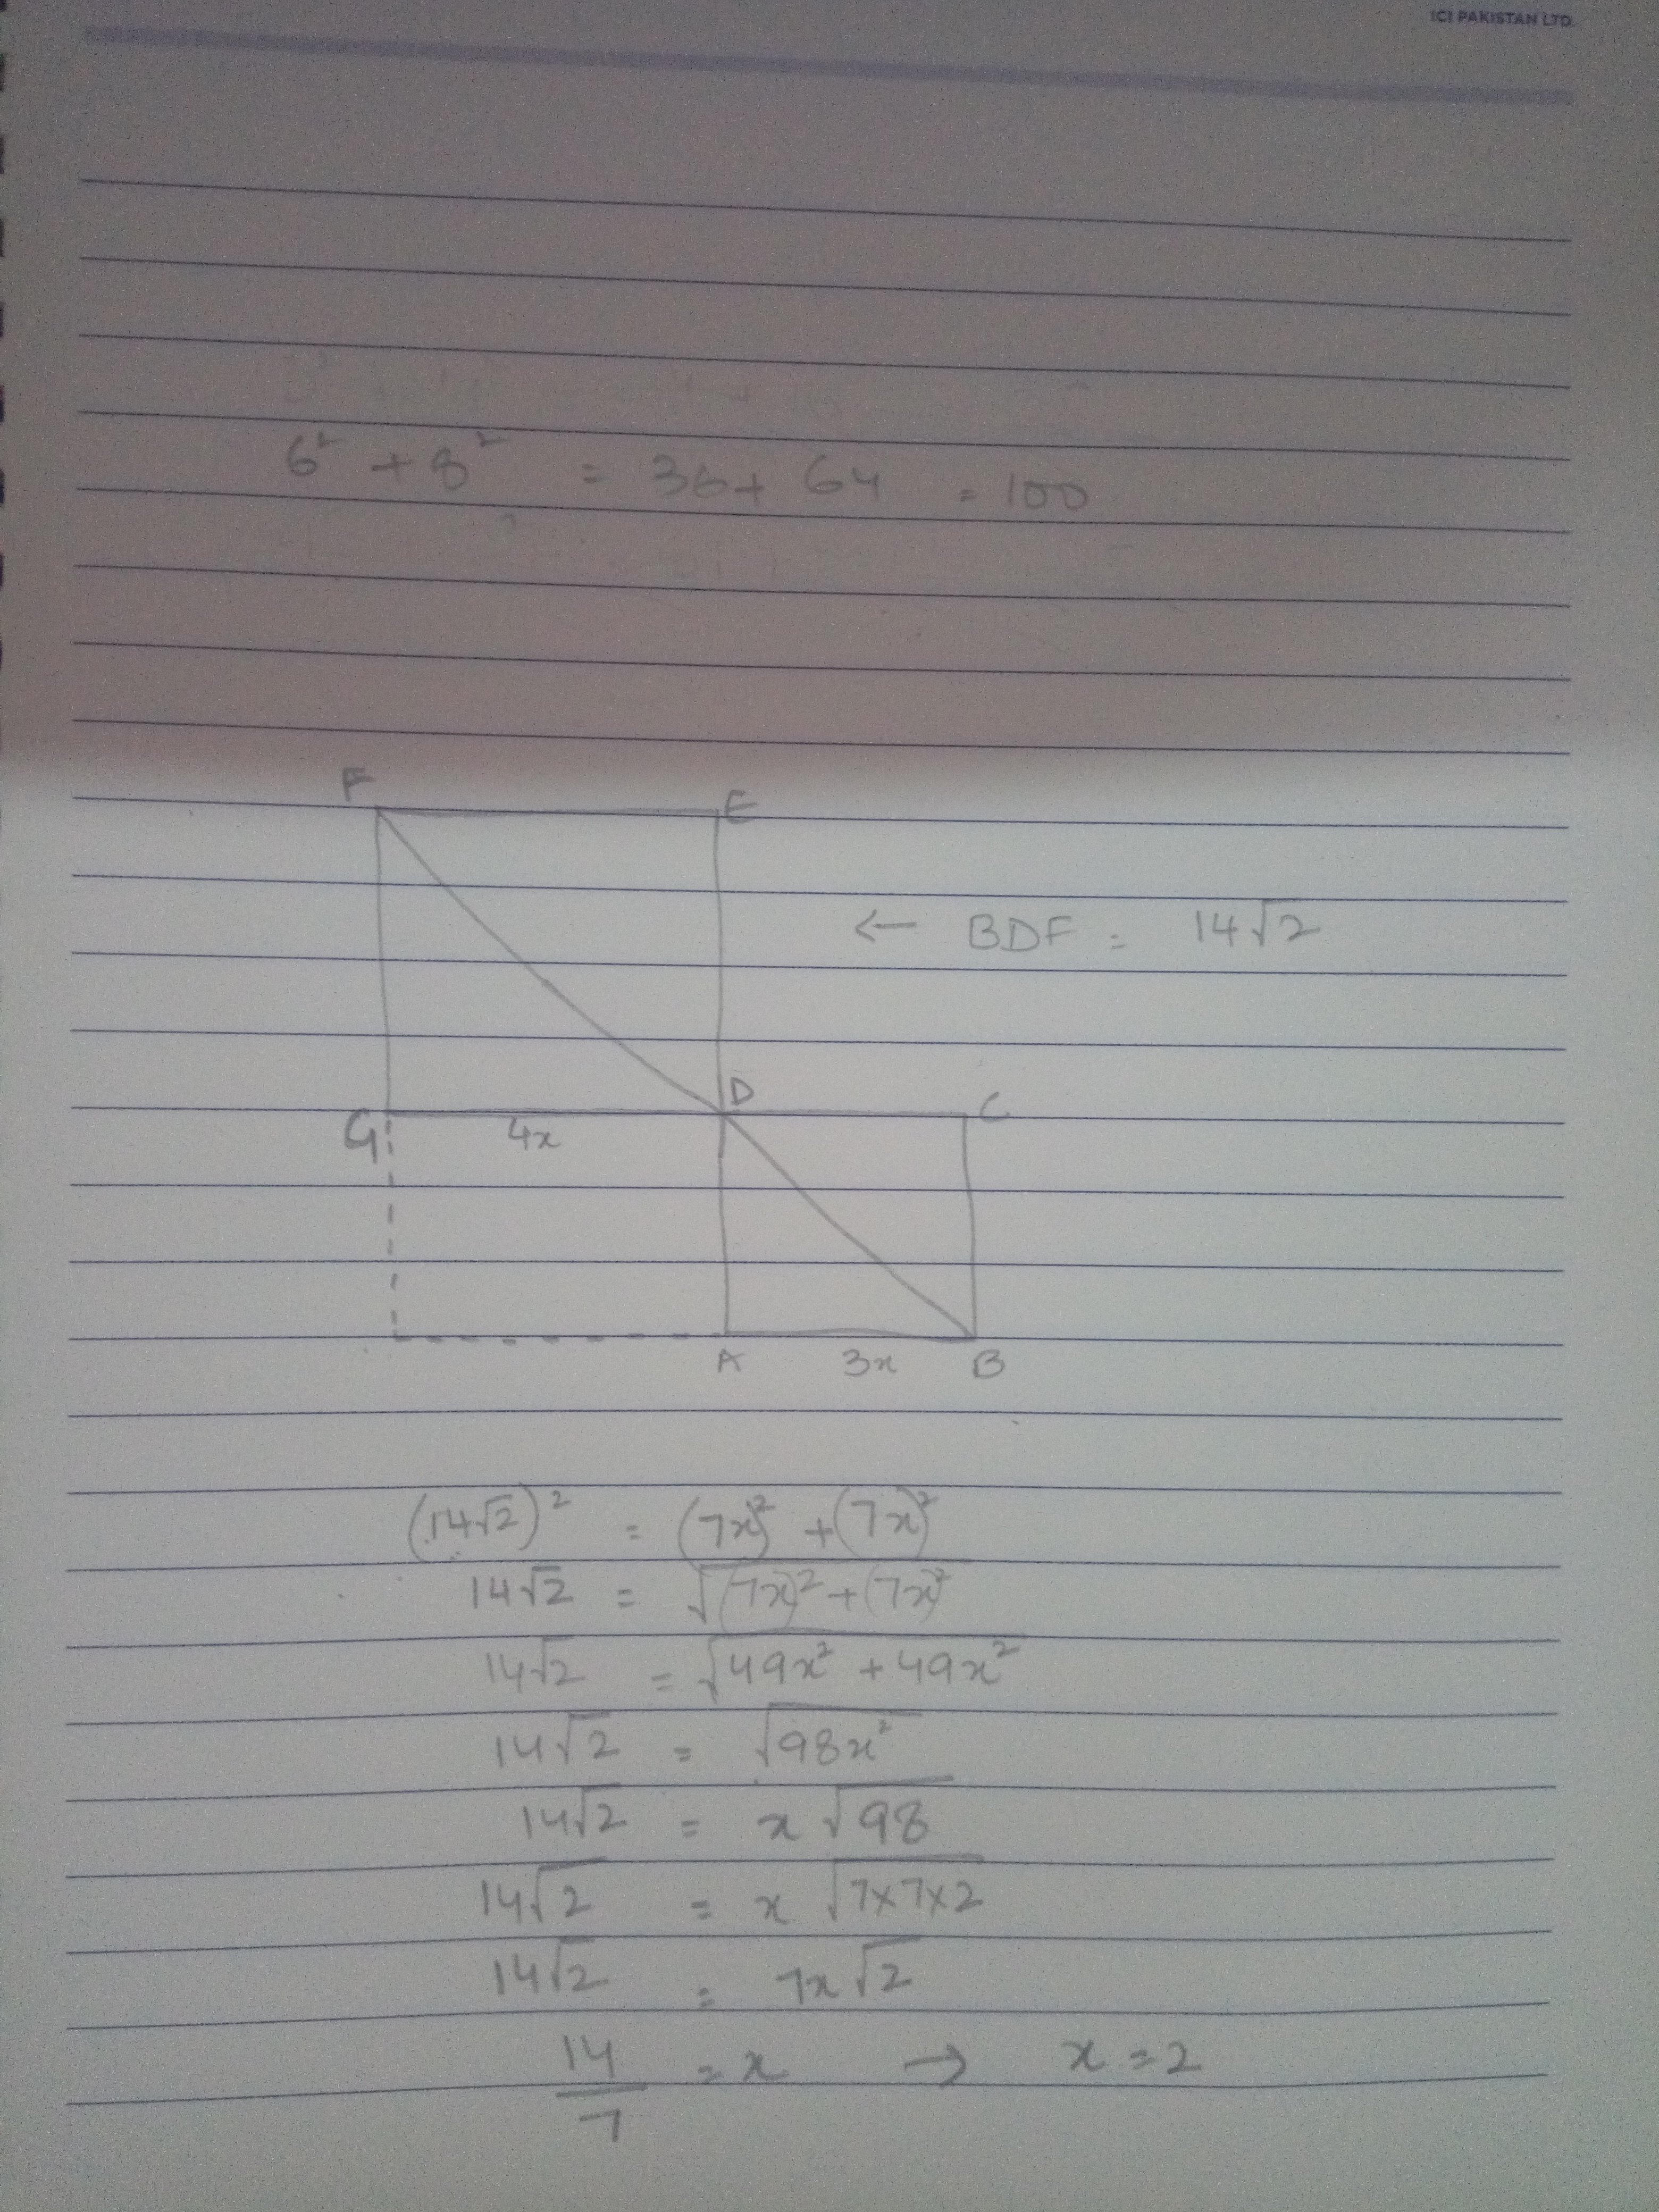 ICI PAKISTAN LTD.
6² + 8² = 36 + 64 = 100
F
E
← BDF = 14√2
D
C
G
4x
A 3x B
(14√2)² = (7x)² + (7x)²
14√2 = √(7x)² + (7x)²
14√2 = √49x² + 49x²
14√2 = √98x²
14√2 = x √98
14√2 = x √7×7×2
14√2 = 7x √2
14/7 = x → x = 2